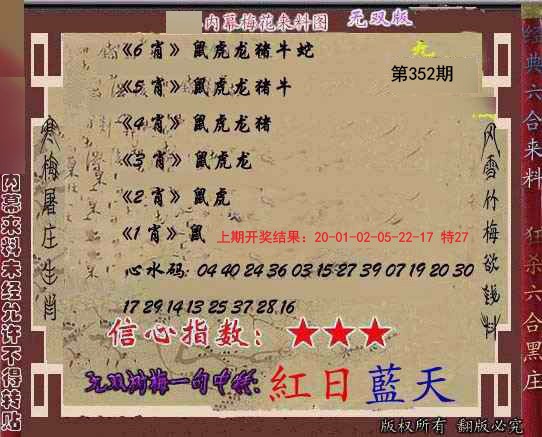 内幕梅花来料图 无双版
《6 肖》 鼠虎龙猪牛蛇
第352期
《5 肖》 鼠虎龙猪牛
《4 肖》 鼠虎龙猪
《3 肖》 鼠虎龙
《2 肖》 鼠虎
《1 肖》 鼠 上期开奖结果：20-01-02-05-22-17 特27
心水码: 04 40 24 36 03 15 27 39 07 19 20 30
17 29 14 13 25 37 28 16
信心指数: ★★★
无双浏梅一句中特: 紅日藍天
版权所有 翻版必究
寒梅屠庄生肖
风雪竹梅欲钱料
内幕来料未经允许不得转贴
经典六合来料 狂杀六合黑庄